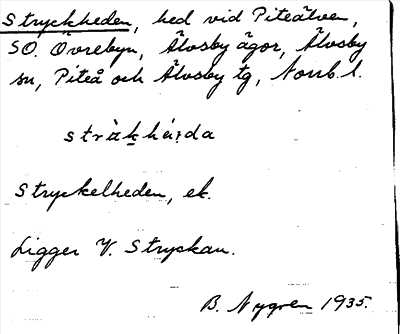 Stryckheden, hed vid Piteälven,
SO. Övrebyn, Älvsby ägor, Älvsby
sn, Piteå och Älvsby tg, Norrb. l.
stràk̲héi:da
Stryckelheden, ek.
Ligger V. Stryckan.
B. Nygren 1935.